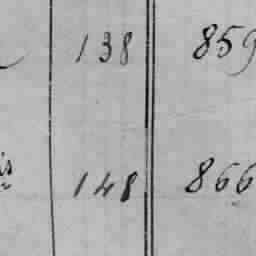 138 859
is 148 866